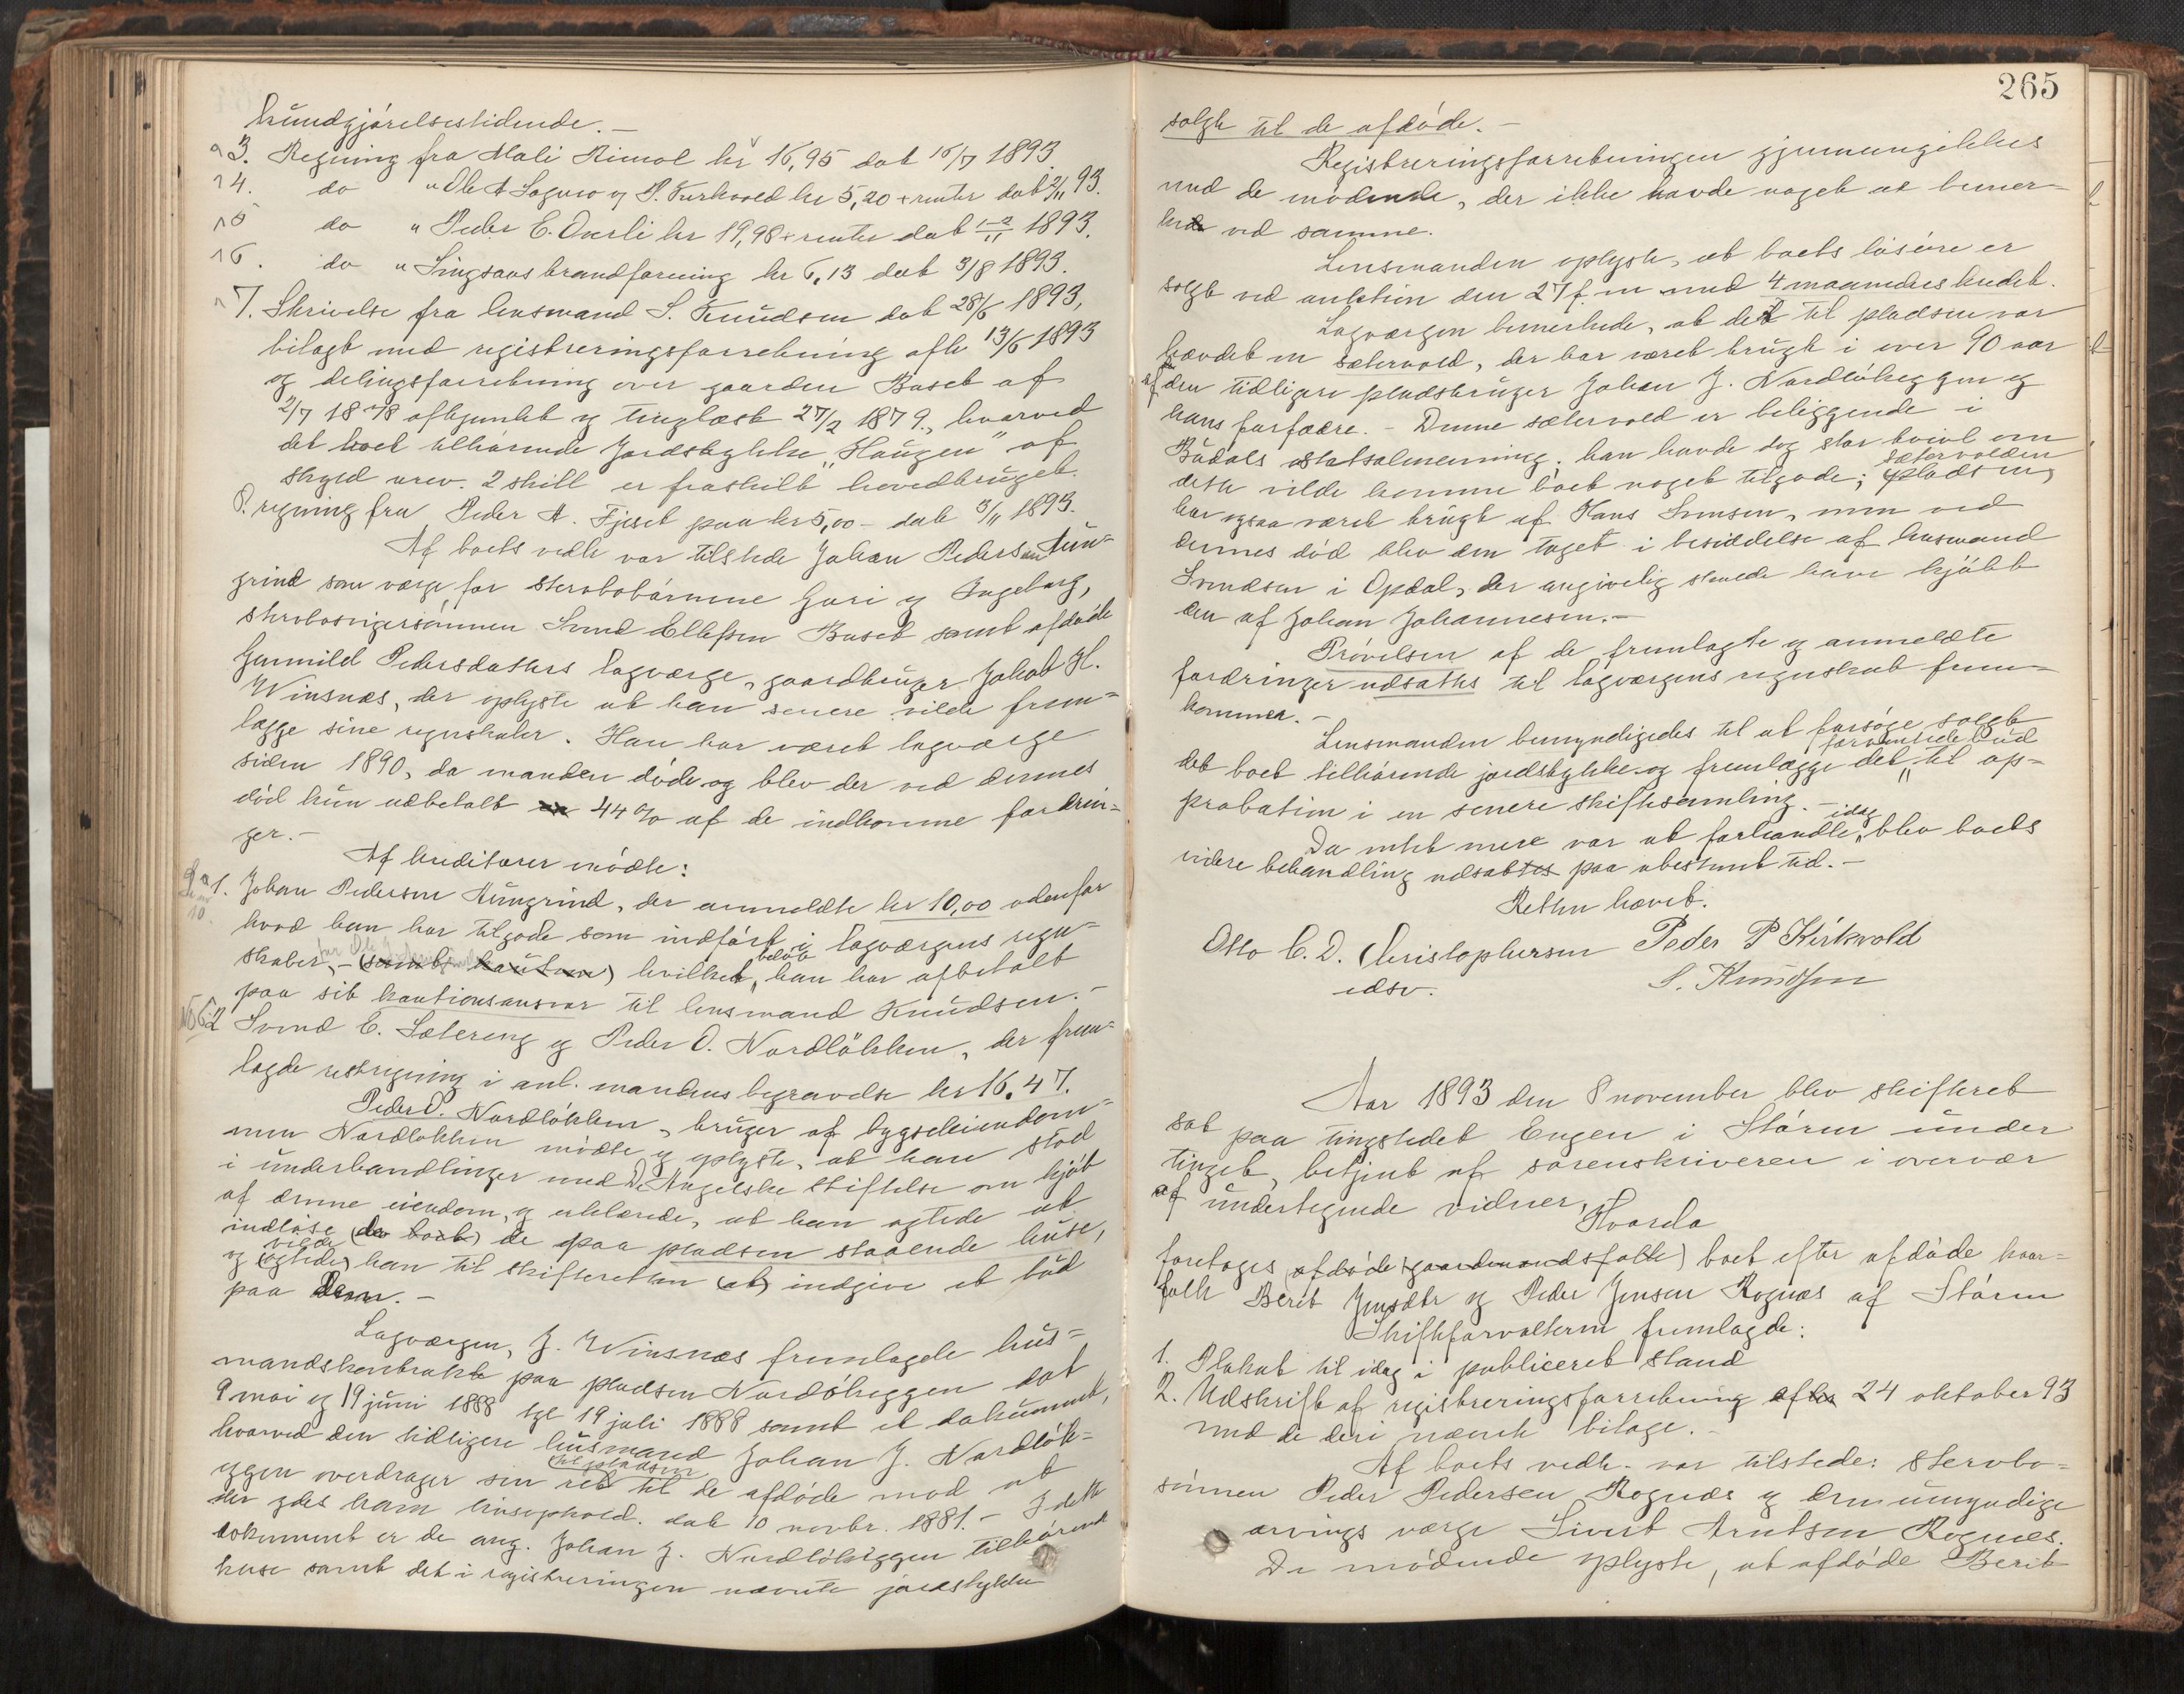 kundgjörelsestidende.-
3. Regning fra Mali Rimol kr 16,95 dat 15/7 1893.
4. do " Ole A Sagmo og P. Kurkvold kr 5,20 + renter dat 2/11 93.
5 do " Peder E. Enerli kr 19,98 + renter dat 1/11 1893.
6. do " Singsaas brandforening kr 6,13 dat 3/8 1893.
7. Skrivelse fra lensmand S. Knudsen dat 28/6 1893,
bilagt med registreringsforretning afh 13/6 1893
og delingsforretning over gaarden Buset af
2/7 1878 afhjemlet og tinglæst 27/2 1879., hvorved
det boet tilhörende Jordstykke "Haugen" af
skyld urev. 2 skill er fraskilt hovedbruget.
8. regning fra Peder A. Fjeset paa kr 5,00 - dat 3/11 1893.
Af boets vedk var tilstede Johan Pedersen Aun-
grind som værge for sterbobörnene Guri og Ingeborg,
stervbosvigersönnen Svend Ellefsen Buset samt afdöde
Gunnild Pedersdatters lagværge, gaardbruger Jakob H.
Winsnæs, der oplyste at han senere vilde frem-
lægge sine regnskaber. Han har været lagværge
siden 1890, da manden döde og blev der ved dennes
död kun udbetalt 44 % af de indkomne fordrin-
ger.-
Af kreditorer mödte:
1. Johan Pedersen Aungrind, der anmeldte kr 10,00 udenfor
hvad han har tilgode som indfört i lagværgens regn-
skaber, - (samt kaution) hvilket beløb han har afbetalt
paa sit kautionsansvar til lensmand Knudsen.-
2 Svend E. Sætereng og Peder O. Nordlökken, der frem-
lagde restregning i anl. mandens begravelse kr 16.47.
Peder O. Nordlökken, bruger af bygseleiendom-
men Nordlökken mödte og oplyste, at han stod
i underhandlinger med D. Angelske stiftelse om kjöb
af denne eiendom, og erklærede, at han agtede at
indlöse (de boet) de paa pladsen staaende huse,
og vilde (agtede) han til skifteretten (at) indgive et bud
paa dem.-
Lagværgen, J. Winsnæs fremlagde hus-
mandskontrakt paa pladsen Nordlökeggen dat
9 mai og 19 juni 1888 tgl 19 juli 1888 samt et dokument,
hvorved den tidligere husmand Johan J. Nordlök-
eggen overdrager sin ret til pladsen til de afdöde mod at
der ydes ham livsophold. dat 10 novbr. 1881.- I dette
dokument er de ang. Johan J. Nordlökeggen tilhörende
huse samt det i registreringen nævnte jordstykke
265
solgt til de afdöde.-
Registreringsforretningen gjennemgikkes
med de mödende, der ikke havde noget at bemer-
ke ved samme.
Lensmanden oplyste, at boets lösöre er
solgt ved auktion den 27 f. m med 4 maaneders kredit.
Lagværgen bemerkede, at det til pladsen var
hævdet en sætervold, der har været brugt i over 90 aar
af den tidligere pladsbruger Johan J. Nordlökeggen og
hans forfædre.- Denne sætervold er beliggende i
Budals statsalmenning. han havde dog stor tvivl om
dette vilde komme boet noget tilgode; sætervolden (pladsen)
har ogsaa været brugt af Hans Svensen, men ved
dennes död blev den taget i besiddelse af lensmand
Svendsen i Opdal, der angivelig skulde have kjöbt
den af Johan Johannesen.-
Prövelsen af de fremlagte og anmeldte
fordringer udsattes til lagværgens regnskab frem-
kommer.-
Lensmanden bemyndigedes til at forsöge solgt
det boet tilhörende jordstykke og fremlægge det forventede bud til ap-
probation i en senere skiftesamling.-
Da intet mere var at forhandle idag, blev boets
videre behandling udsat paa ubestemt tid.-
Retten hævet.
Otto C. D. Christophersen Peder P Kirkvold
edsv. S. Knudsen
Aar 1893 den 8 november blev skifteret
sat paa tingstedet Engen i Stören under
tinget, betjent af sorenskriveren i overvær
af undertegnede vidner,
Hvorda
foretoges (afdöde gaardmandsfolk) boet efter afdöde kaar-
folk Berit Jensdtr og Peder Jensen Rognæs af Stören
Skifteforvalteren fremlagde:
1. Plakat til idag i publiceret stand
2. Udskrift af registreringsforretning afh 24 oktober 93
med de deri nævnte bilage.-
Af boets vedk. var tilstede: stervbo-
sönnen Peder Pedersen Rognæs og den umyndige
arvings værge Sivert Arntsen Rognæs.
De mödende oplyste, at afdöde Berit